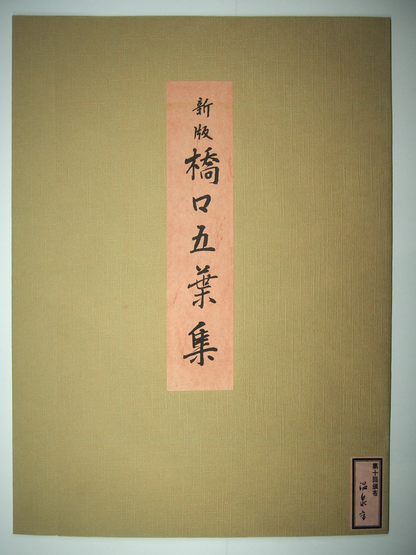 新版
橋口五葉集
第十回頒布
温泉宿